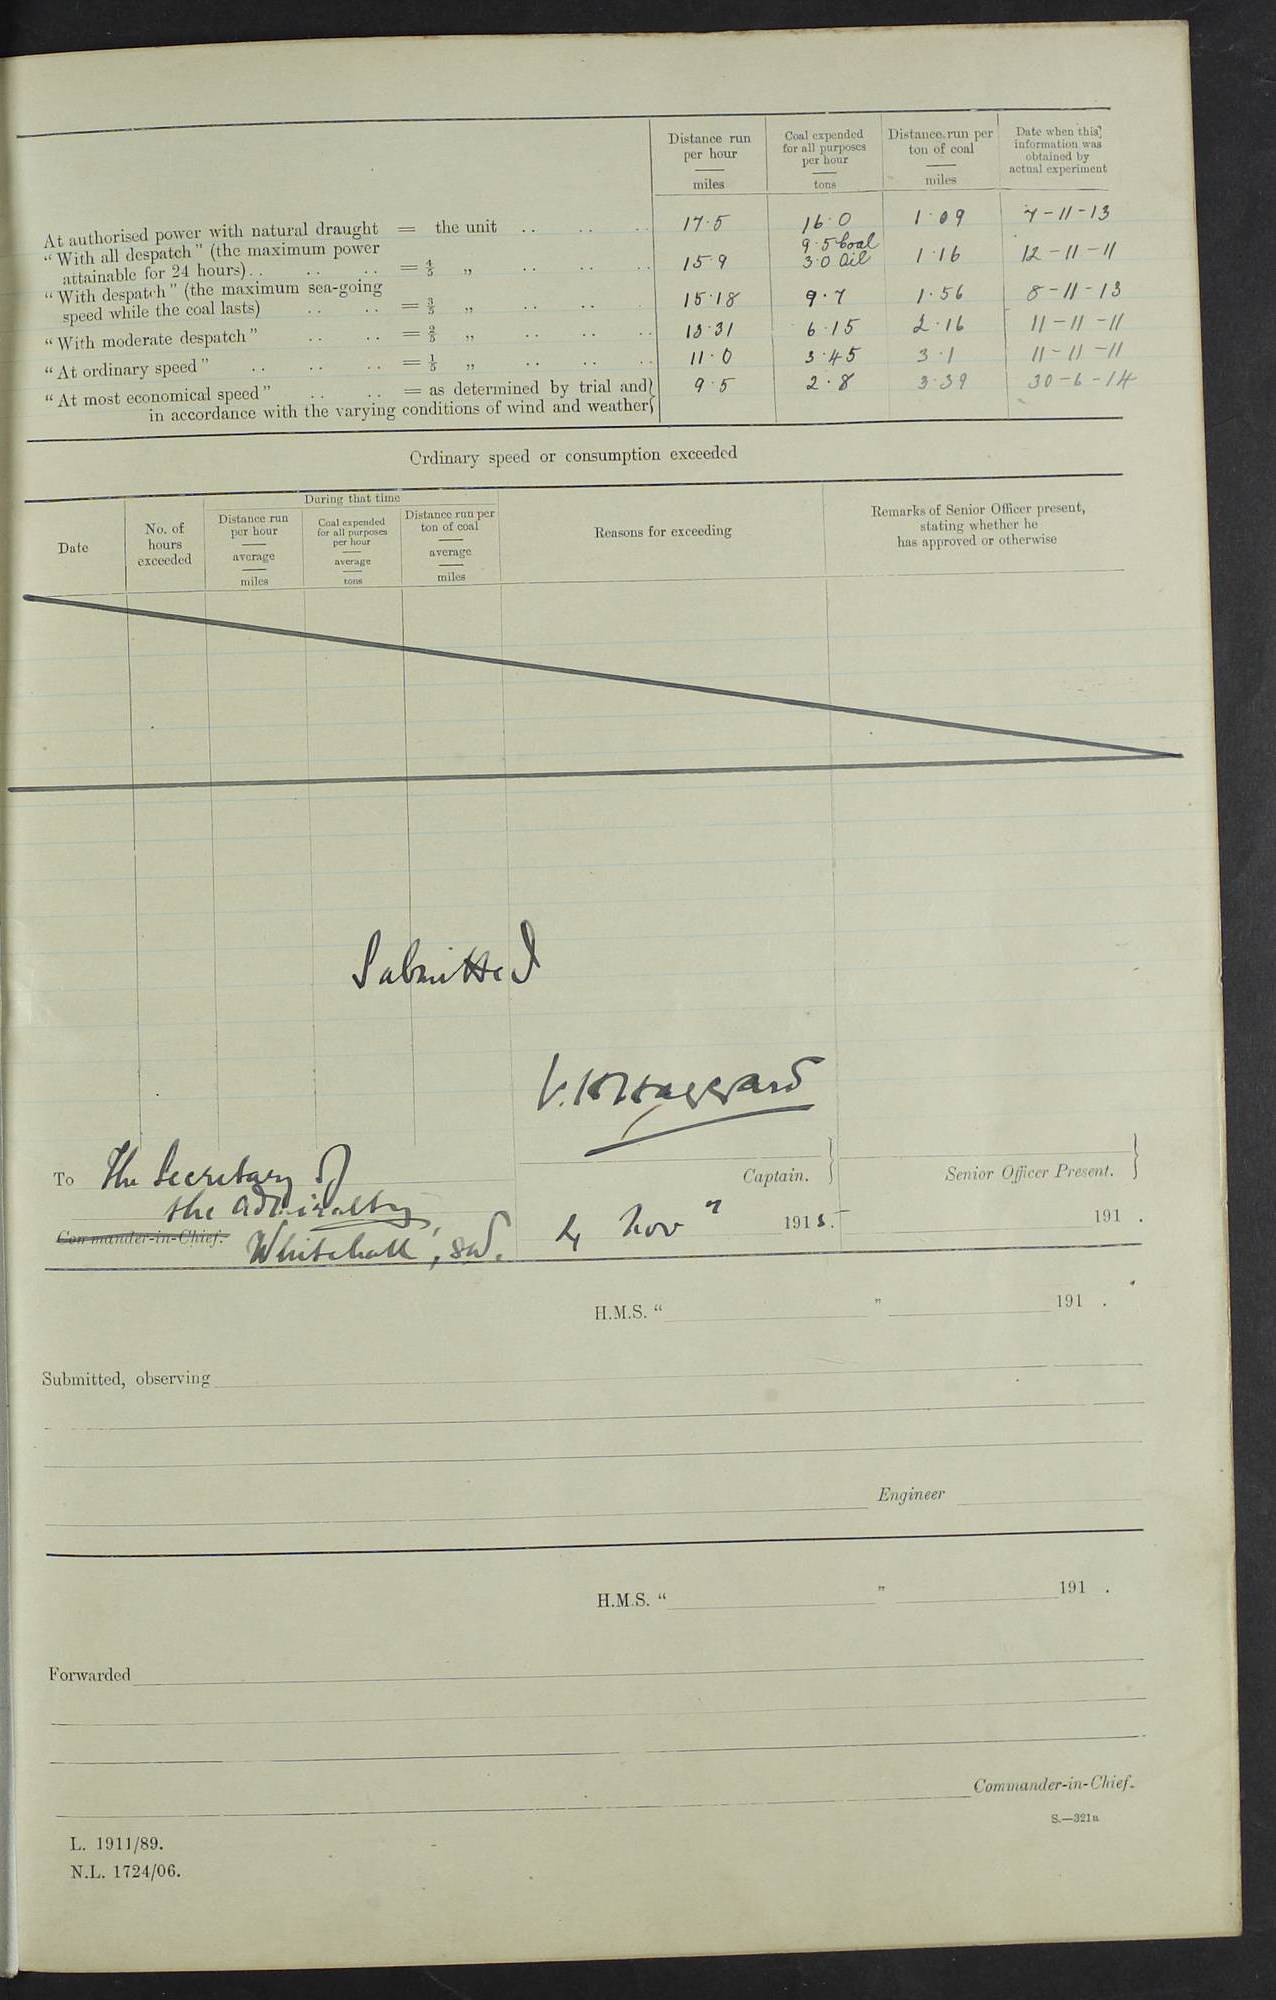 Distance run per hour — miles
Coal expended for all purposes per hour — tons
Distance run per ton of coal — miles
Date when this information was obtained by actual experiment
At authorised power with natural draught = the unit .. .. .. 17.5 16.0 1.09 7-11-13
"With all despatch" (the maximum power
attainable for 24 hours) .. .. .. = 4/5 „ .. .. .. 15.9 9.5 Coal 3.0 Oil 1.16 12-11-11
"With despatch" (the maximum sea-going
speed while the coal lasts) .. .. = 3/5 „ .. .. .. 15.18 9.7 1.56 8-11-13
"With moderate despatch" .. .. = 2/5 „ .. .. .. 13.31 6.15 2.16 11-11-11
"At ordinary speed" .. .. .. = 1/5 „ .. .. .. 11.0 3.45 3.1 11-11-11
"At most economical speed" .. .. = as determined by trial and 9.5 2.8 3.39 30-6-14
in accordance with the varying conditions of wind and weather
Ordinary speed or consumption exceeded
Date
No. of hours exceeded
During that time
Distance run per hour — average — miles
Coal expended for all purposes per hour — average — tons
Distance run per ton of coal — average — miles
Reasons for exceeding
Remarks of Senior Officer present, stating whether he has approved or otherwise
Submitted
V. H Haggard
To The Secretary of
Captain. Senior Officer Present.
the Admiralty,
Commander-in-Chief. Whitehall, S.W. 4 Nov 1915. 191 .
H.M.S. " " 191 .
Submitted, observing
Engineer
H.M.S. " " 191 .
Forwarded
Commander-in-Chief.
S.—321a
L. 1911/89.
N.L. 1724/06.